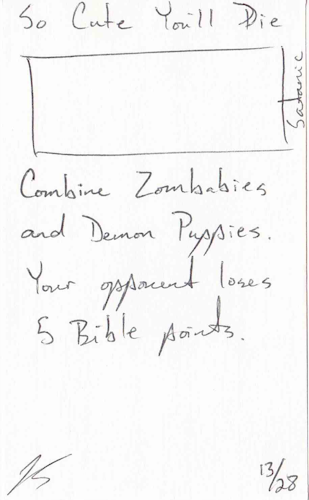 So Cute You'll Die
Satanic
Combine Zombabies
and Demon Puppies.
Your opponent loses
5 Bible points.
13/28